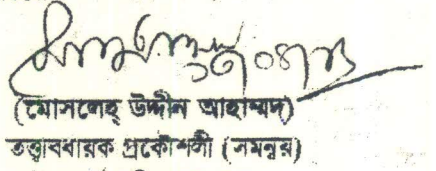 (মোসলেহ্ উদ্দীন আহাম্মদ)
তত্ত্বাবধায়ক প্রকৌশলী (সমন্বয়)